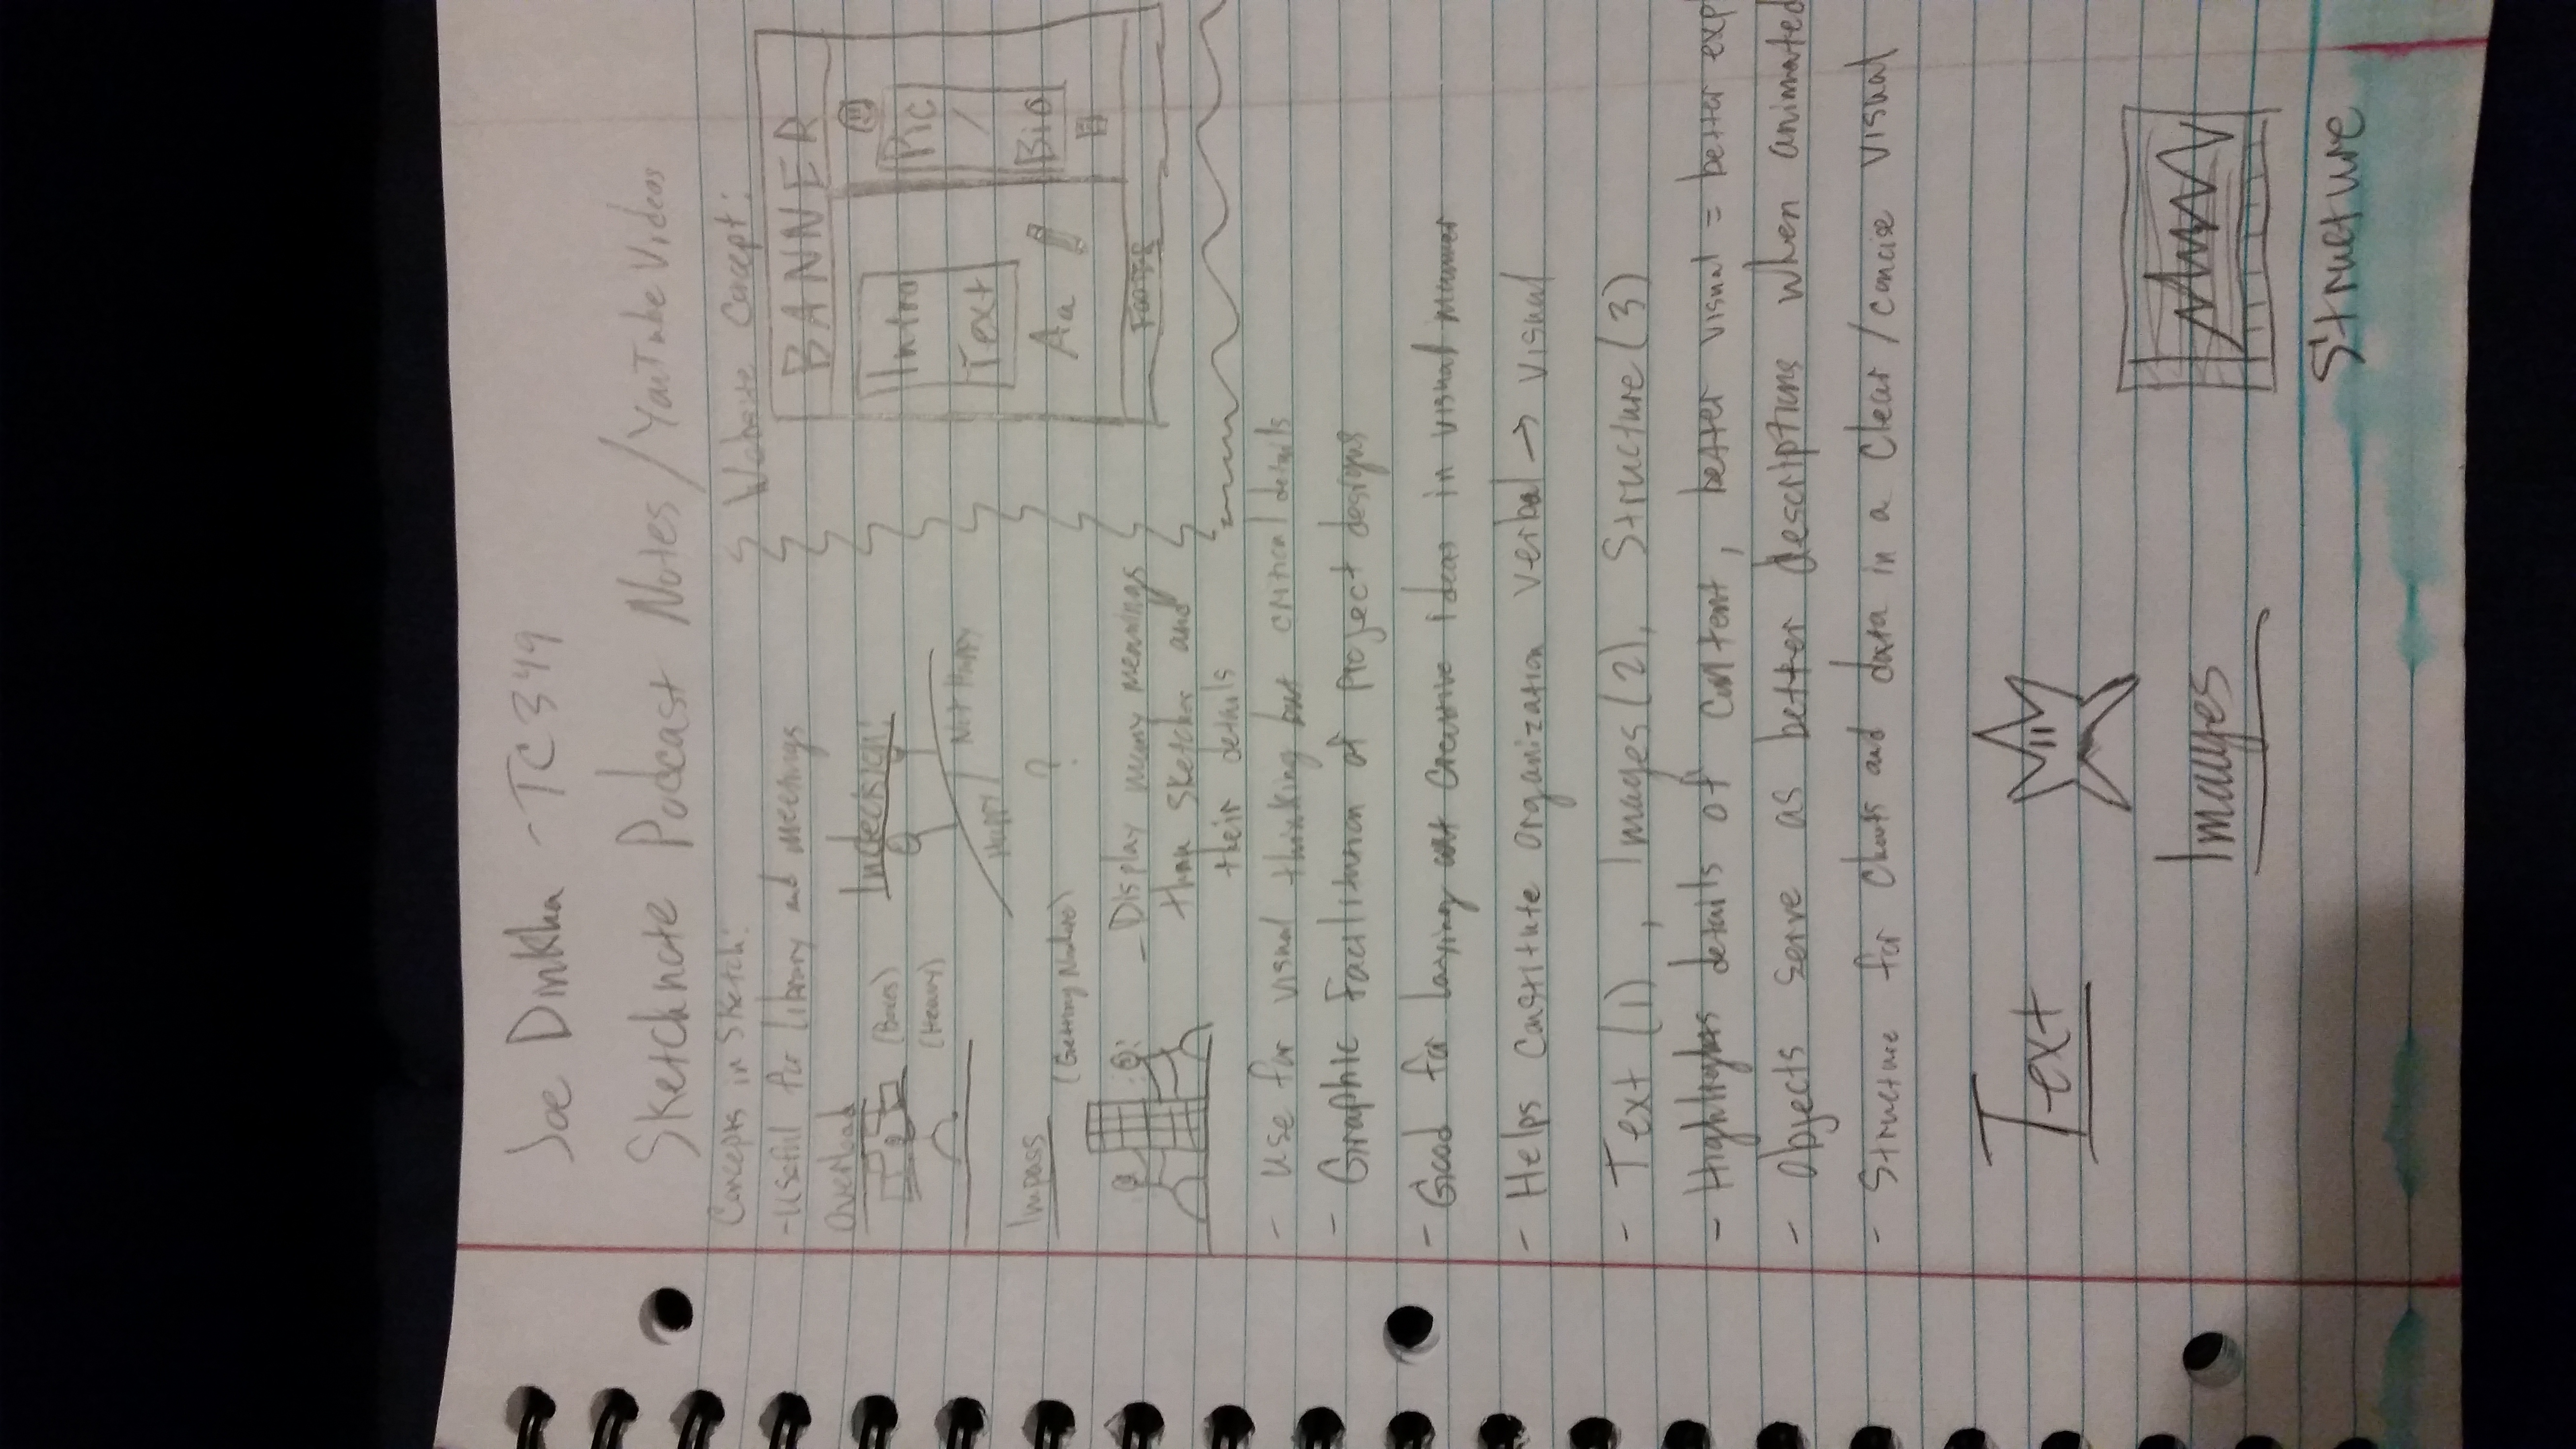 Joe Dinkha - TC349
Sketchnote Podcast Notes / YouTube Videos
Concepts in Sketch:
- Useful for library and meetings
Overload
(Boxes)
(Heavy)
Indecision:
Happy
Not Happy
?
Impass
(Getting Nowhere)
- Display many meanings
than sketches and
their details
Website Concept:
BANNER
Intro
Text
Aa
Pic
/
Bio
FOOTER
- Use for visual thinking but critical details
- Graphic Facilitation of Project designs
- Good for laying out creative ideas in visual manner
- Helps constitute organization verbal → visual
- Text (1), Images (2), Structure (3)
- Highlights details of content, better visual = better exp
- Objects serve as better descriptions when animated
- Structure for charts and data in a clear / concise visual
Text
Images
Structure